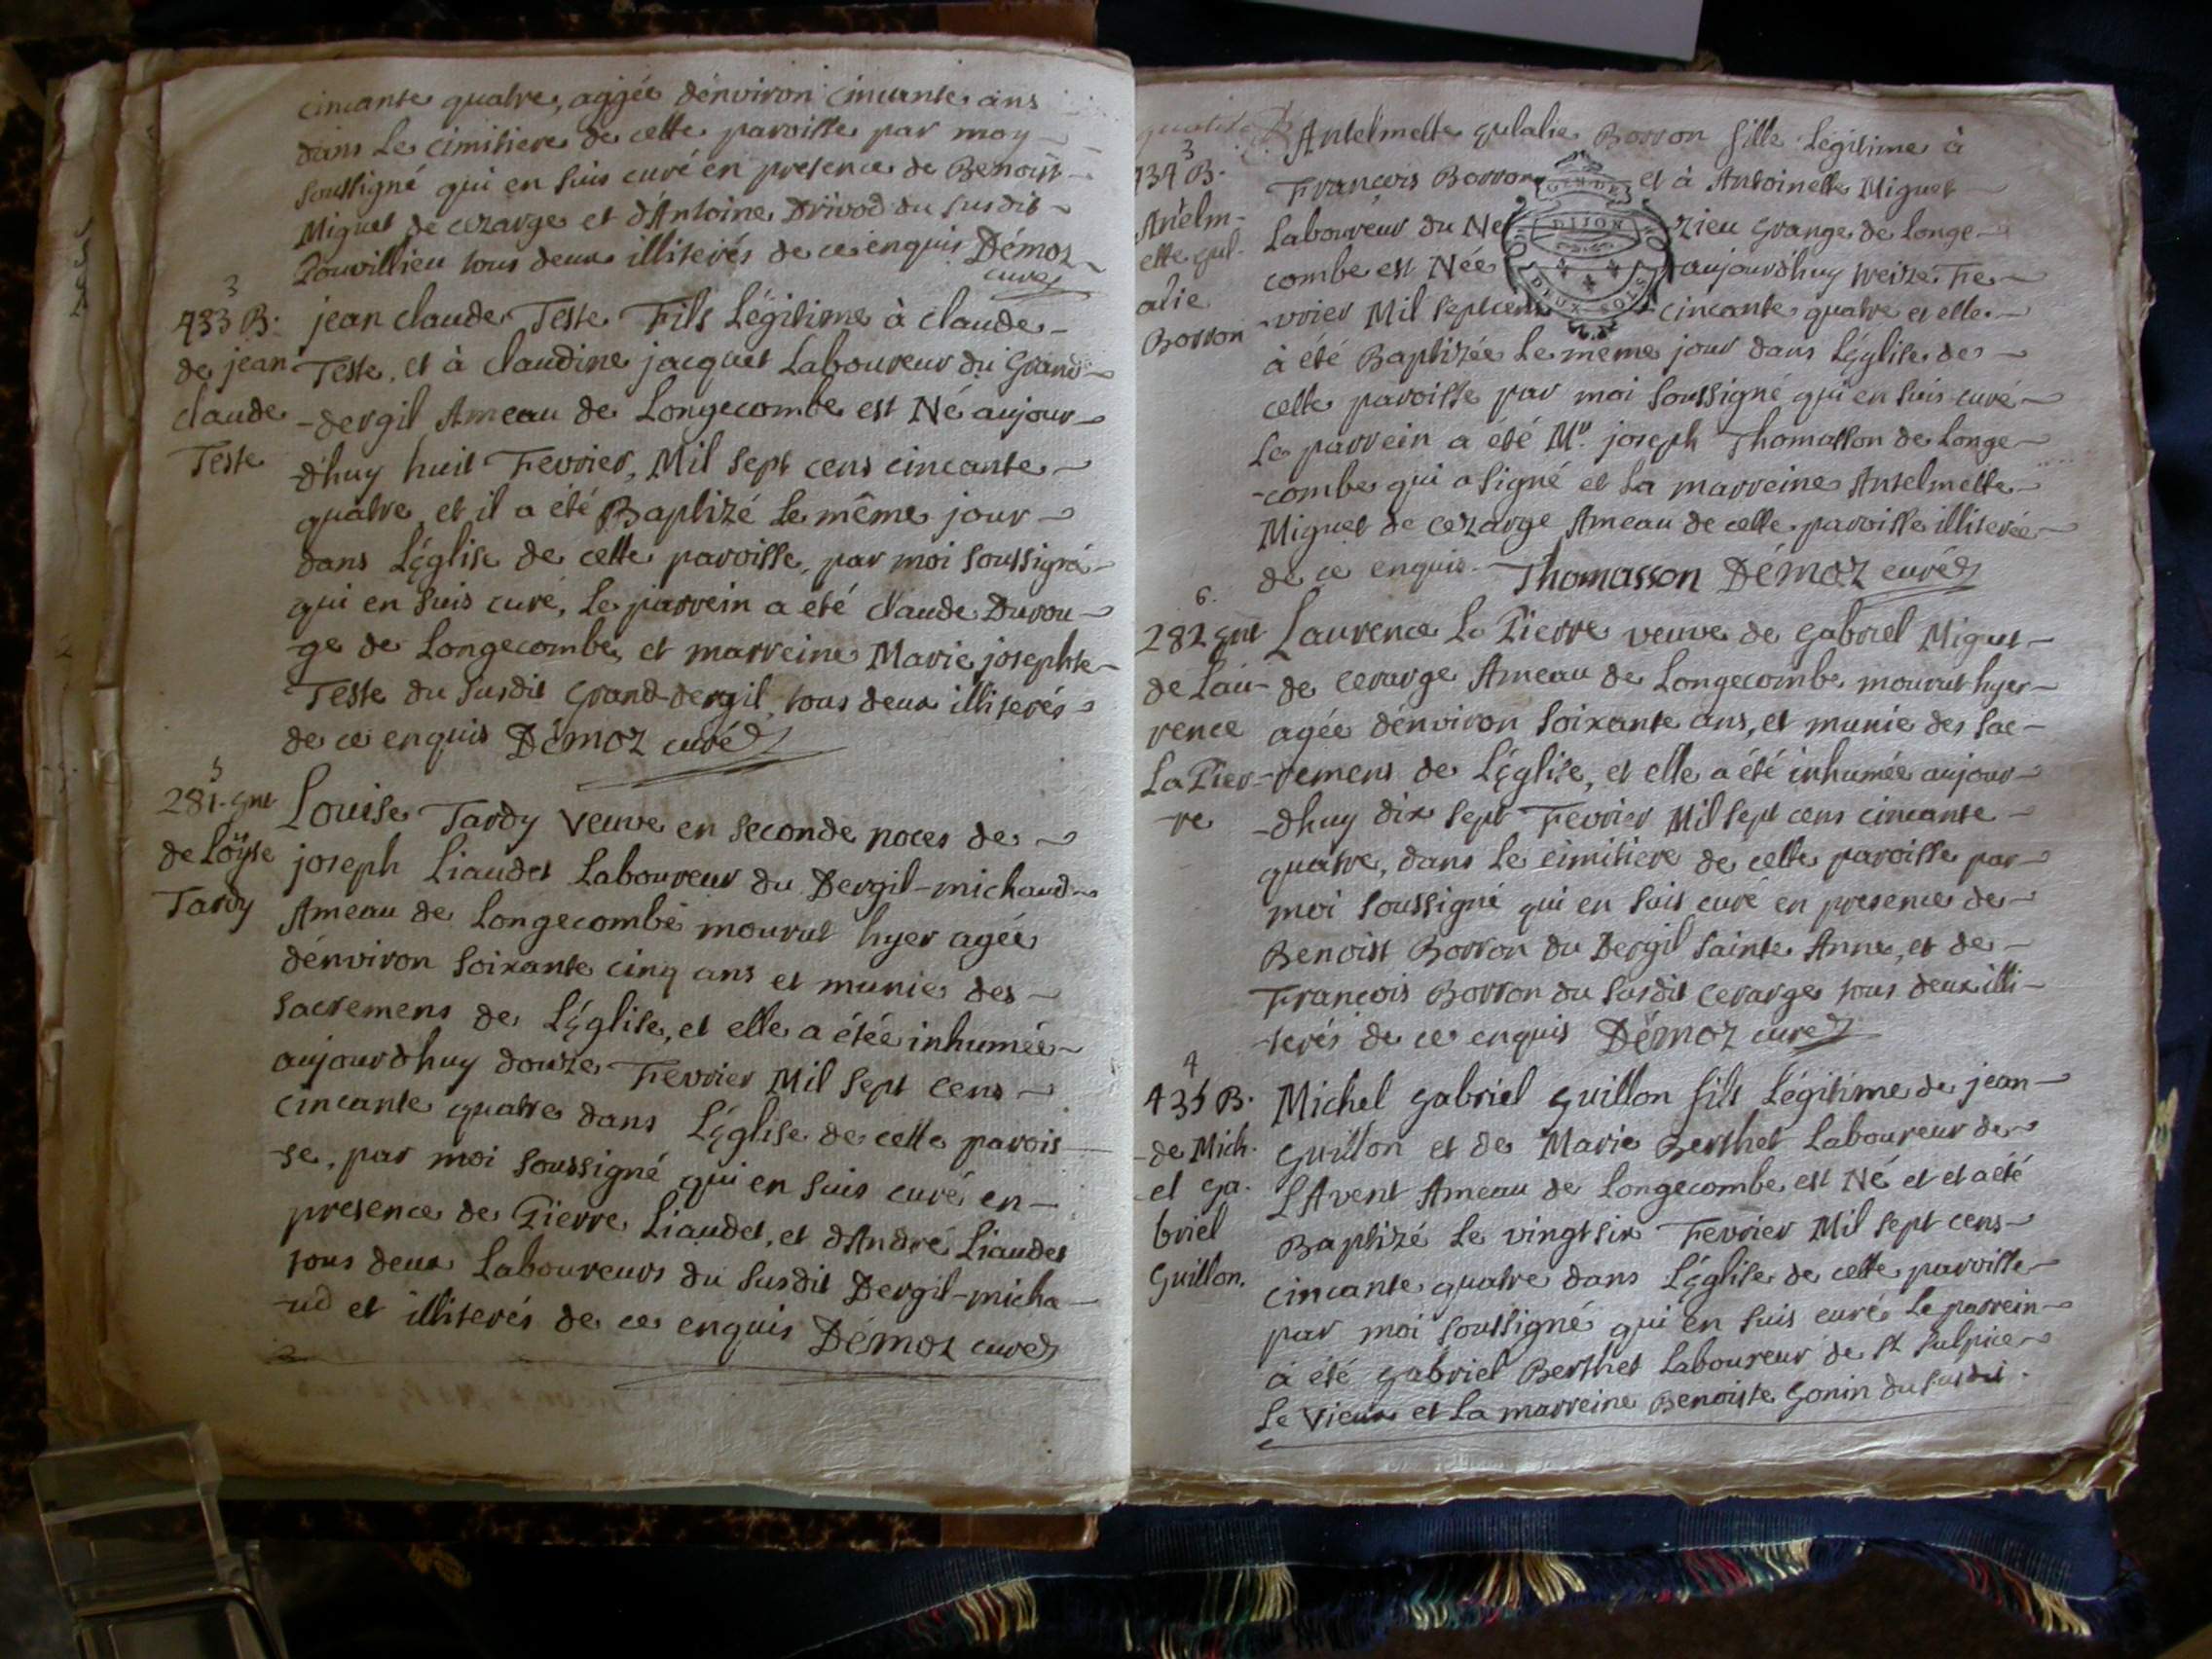 cincante quatre, aggée dénviron cincante ans
dans Le cimitiere de cette paroisse par moy
soussigné qui en suis curé en presence de Benoist
Miguet de cezarge et d'Antoine Drivod du susdit
Pouvillieu tous deux illiterés de ce enquis Démoz
curé
3
433 B.
de jean
claude
Teste
jean claude Teste Fils Légitime à claude
Teste, et à claudine jacquet Laboureur du Grand
-dergil Ameau de Longecombe est Né aujour
d'huy huit Fevrier, Mil sept cens cincante
quatre, et il a été Baptizé Le même jour
dans L'église de cette paroisse, par moi soussigné
qui en suis curé, Le parrein a été claude Durou
ge de Longecombe, et marreine Marie josephte
Teste du susdit Grand-dergil, tous deux illiterés
de ce enquis Démoz curé
5
281. Ent
de Loÿse
Tardy
Louise Tardy Veuve en seconde noces de
joseph Liaudet Laboureur du Dergil-michaud
Ameau de Longecombe mourut hyer agée
dénviron soixante cinq ans et munie des
sacremens de L'église, et elle a étée inhumée
aujourdhuy douze Fevrier Mil sept cens
cincante quatre dans L'église de cette parois
-se, par moi soussigné qui en suis curé en
presence de Pierre Liaudet, et d'André Liaudet
tous deux Laboureurs du susdit Dergil-micha
-ud et illiterés de ce enquis Démoz curé
3
434 B.
Anselm-
ette eul-
alie
Borron
Antelmette eulalie Borron fille Légitime à
François Borron et à Antoinette Miguet
Laboureur du Ne zieu Grange de Longe-
combe est Née aujourdhuy treize Fe
-vrier Mil sept cens cincante quatre et elle
à eté Baptizée Le meme jour dans L'église de
cette paroisse par moi soussigné qui en suis curé
Le parrein a été Mr. joseph Thomasson de Longe
-combe qui a signé et La marreine Antelmette
Miguet de cezarge Ameau de cette paroisse illiterée
de ce enquis Thomasson Démoz curé
6.
282 Ent
de Lau-
rence
La Pier-
-re
Laurence La Pierre veuve de Gabriel Miguet
de cerarge Ameau de Longecombe mourut hyer
agée dénviron soixante ans, et munie des sac-
-remens de L'église, et elle a été inhumée aujour
-dhuy dix sept Fevrier Mil sept cens cincante
quatre, dans Le cimitiere de cette paroisse par
moi soussigné qui en suis curé en presence de
Benoist Borron du Dergil sainte Anne, et de
François Borron du susdit cerarge tous deux illi
-terés de ce enquis Démoz curé
4
435 B.
de Mich-
el Ga-
briel
Guillon.
Michel Gabriel Guillon fils Légitime de jean
Guillon et de Marie Berthet Laboureur de
L'Avent Ameau de Longecombe est Né et et a été
Baptizé Le vingt six Fevrier Mil sept cens
cincante quatre dans L'église de cette paroisse
par moi soussigné qui en suis curé Le parrein
à été Gabriel Berthet Laboureur de St Sulpice
Le Vieux et La marreine Benoiste Gonin du susdit